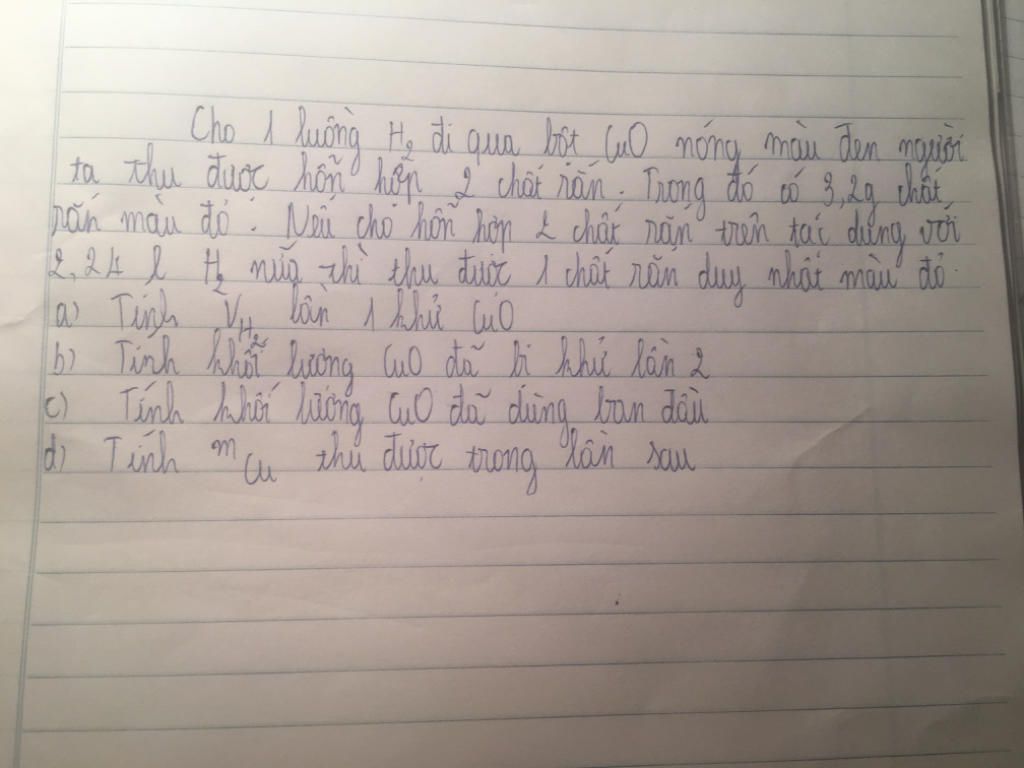 Cho 1 luồng H₂ đi qua bột CuO nóng màu đen người
ta thu được hỗn hợp 2 chất rắn. Trong đó có 3,2g chất
rắn màu đỏ. Nếu cho hỗn hợp 2 chất rắn trên tác dụng với
2,24 l H₂ nữa thì thu được 1 chất rắn duy nhất màu đỏ.
a) Tính V_H₂ lần 1 khử CuO
b) Tính khối lượng CuO đã bị khử lần 2
c) Tính khối lượng CuO đã dùng ban đầu
d) Tính m_Cu thu được trong lần sau